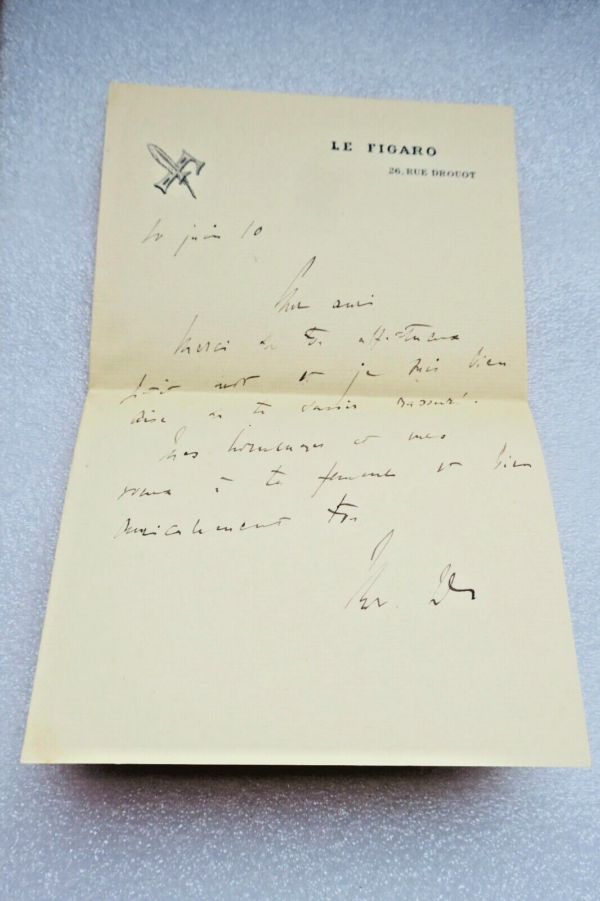 LE FIGARO
26, RUE DROUOT
10 juin 10
Cher ami
Merci de ton affectueux
petit mot et je suis bien
aise de te savoir rassuré.
Mes hommages et mes
voeux à ta femme et bien
amicalement ton